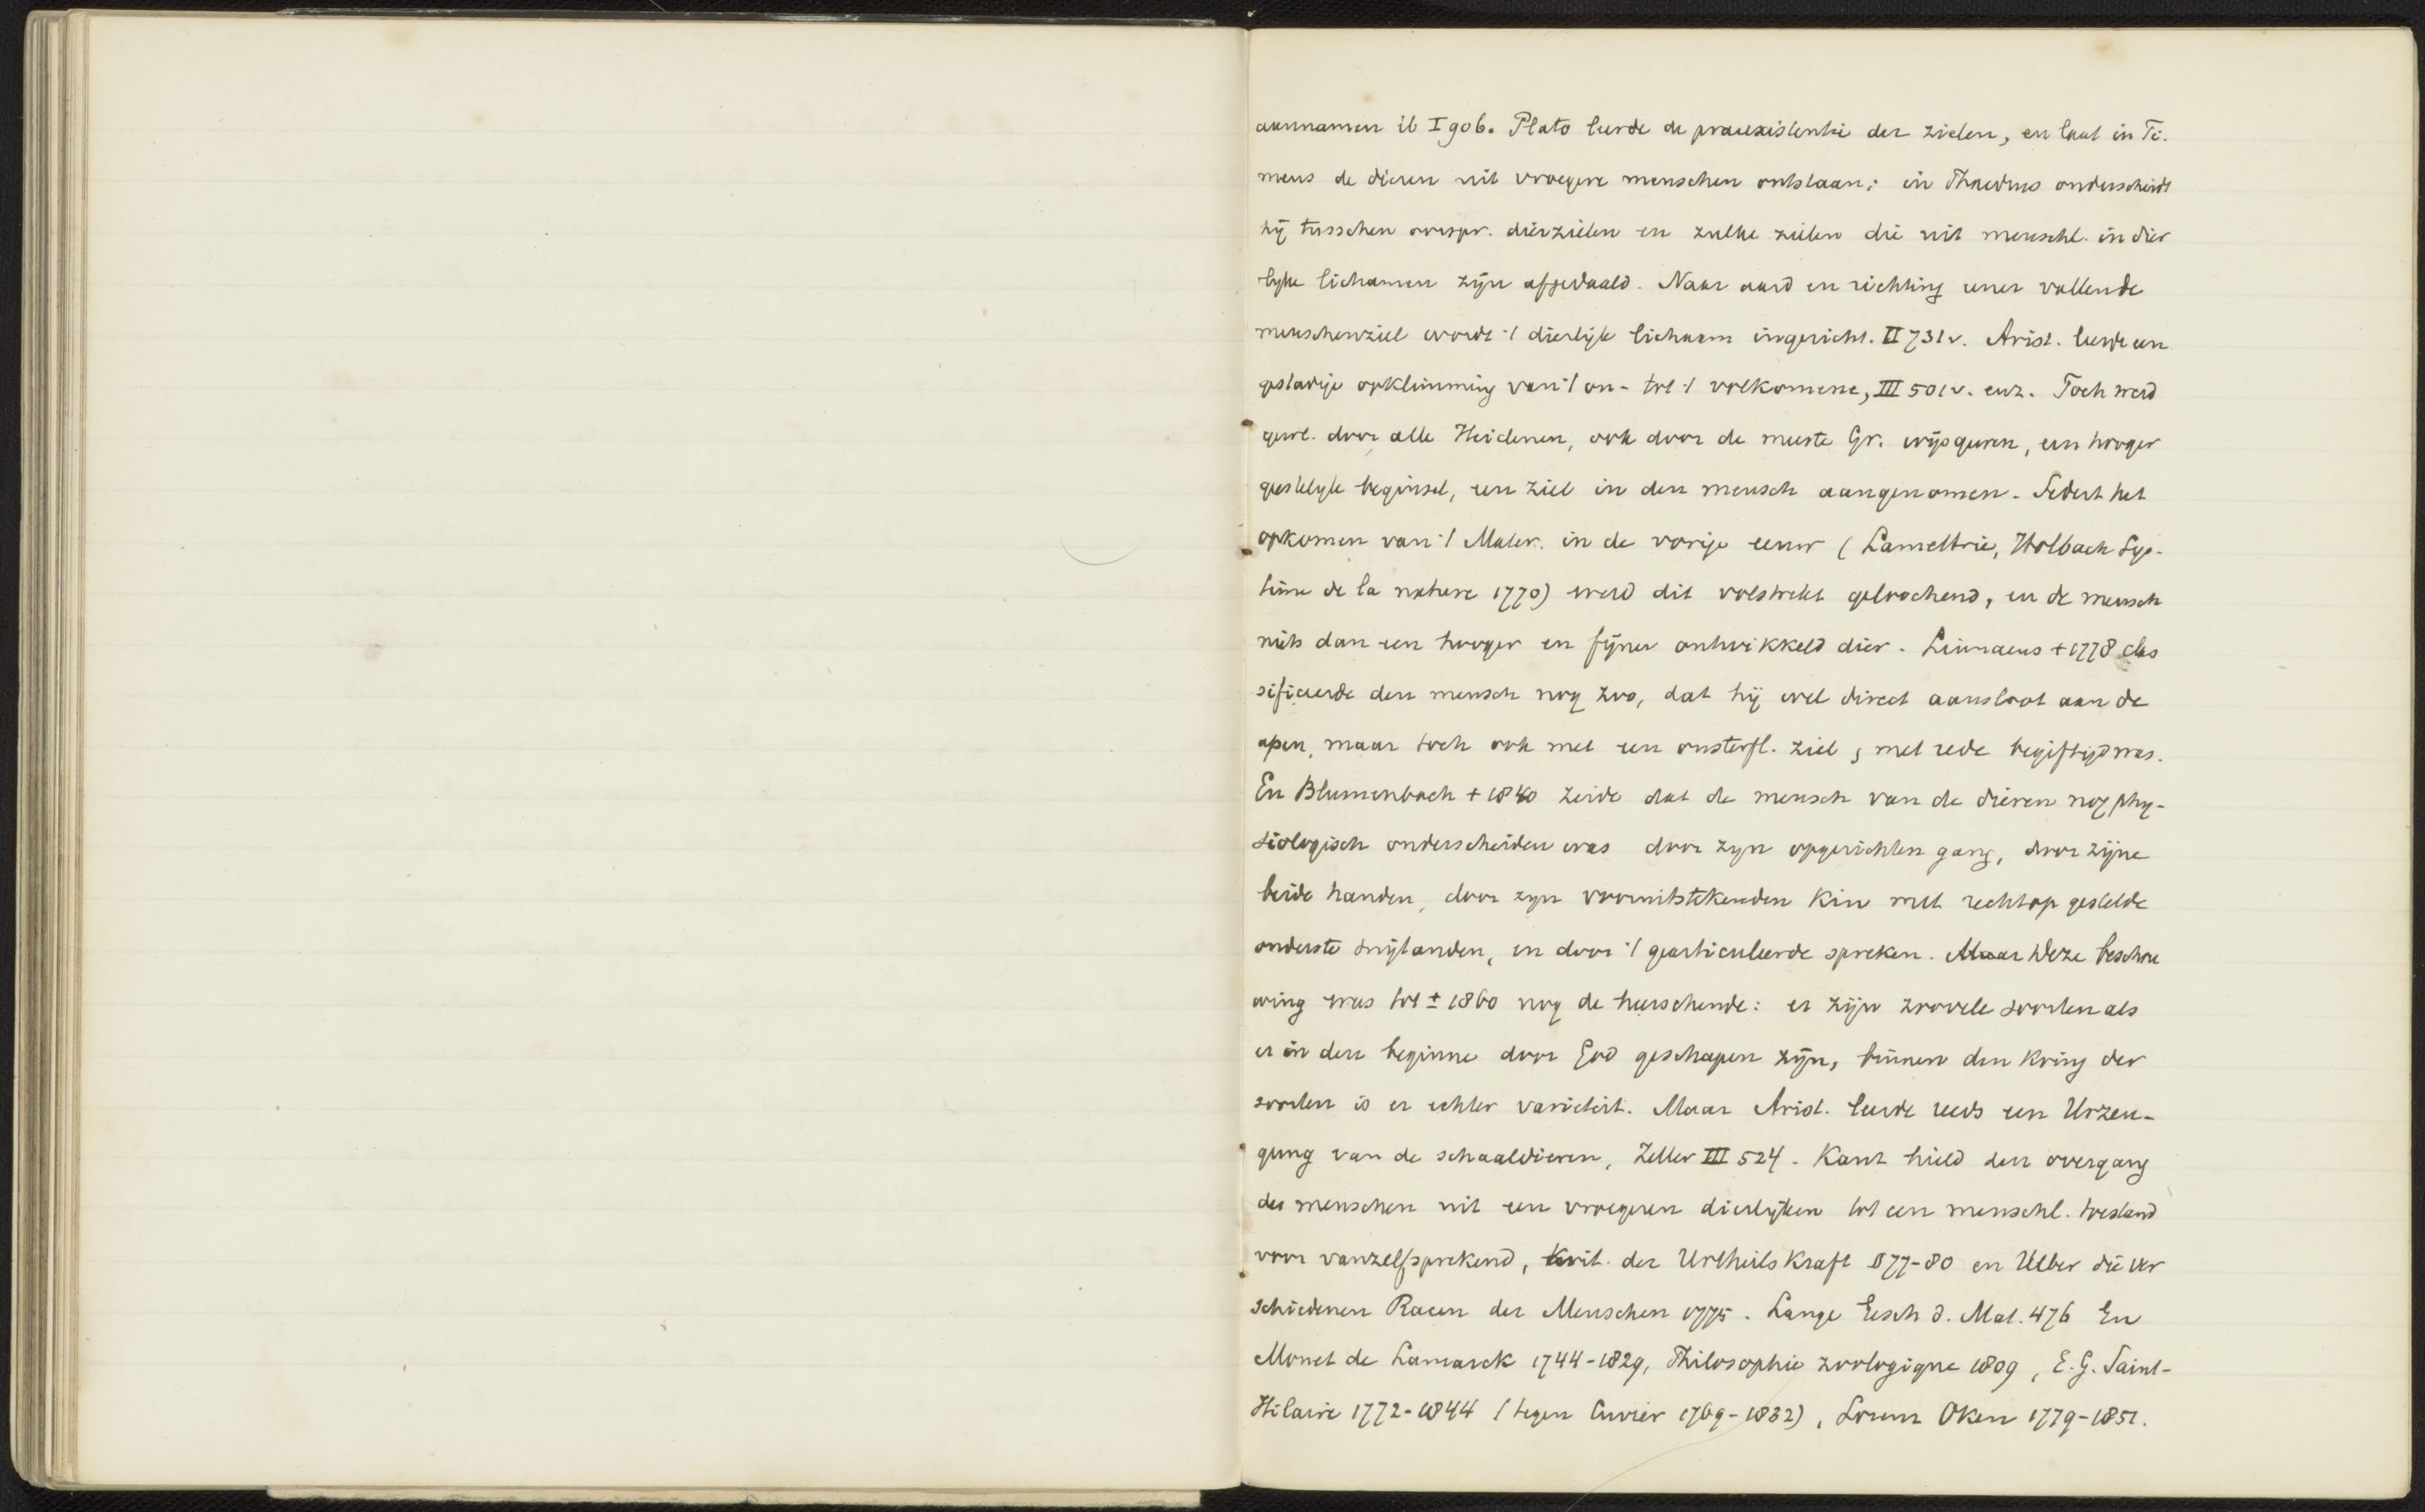 aannamen ib I 906. Plato leerde de praeexistentie der zielen, en laat in Ti-
meus de dieren uit vroegere menschen ontstaan; in Phaedrus onderscheidt
hij tusschen oorspr. dierzielen en zulke zielen die uit menschl. in dier
lyke lichamen zijn afgedaald. Naar aard en richting eener vallende
menschenziel wordt 't dierlijk lichaam ingericht. II 731 v. Arist. leerde een
gestadige opklimming van 't on- tot 't volkomene, III 501 v. enz. Toch werd
gewl. door alle Heidenen, ook door de meeste Gr. wijsgeeren, een hooger
geestelyk beginsel, een ziel in den mensch aangenomen. Sedert het
opkomen van 't Mater. in de vorige eeuw (Lamettrie, Holbach Sys-
tème de la nature 1770) werd dit volstrekt geloochend, en de mensch
niets dan een hooger en fijner ontwikkeld dier. Linnaeus + 1778 clas
sificeerde den mensch nog zoo, dat hij wel direct aansloot aan de
apen, maar toch ook met een onsterfl. ziel, met rede begiftigd was.
En Blumenbach + 1840 zeide dat de mensch van de dieren nog phy-
siologisch onderscheiden was door zyn opgerichten gang, door zijne
beide handen, door zyn vooruitstekenden kin met rechtop gestelde
onderste snijtanden, en door 't gearticuleerde spreken. Maar Deze beschou
wing was tot ± 1860 nog de heerschende: er zijn zoovele soorten als
er in den beginne door God geschapen zijn, binnen den kring der
soorten is er echter varieteit. Maar Arist. leerde reeds een Urzeu-
gung van de schaaldieren, Zeller III 524. Kant hield den overgang
des menschen uit een vroegeren dierlijken tot een menschl. toestand
voor vanzelfsprekend, Krit. der Urtheilskraft § 77-80 en Ueber die ver
schiedenen Racen der Menschen 1775. Lange Gesch d. Mat. 476 En
Monet de Lamarck 1744-1829, Philosophie zoologique 1809, E. G. Saint-
Hilaire 1772-1844 (tegen Cuvier 1769-1832), Lorenz Oken 1779-1851.